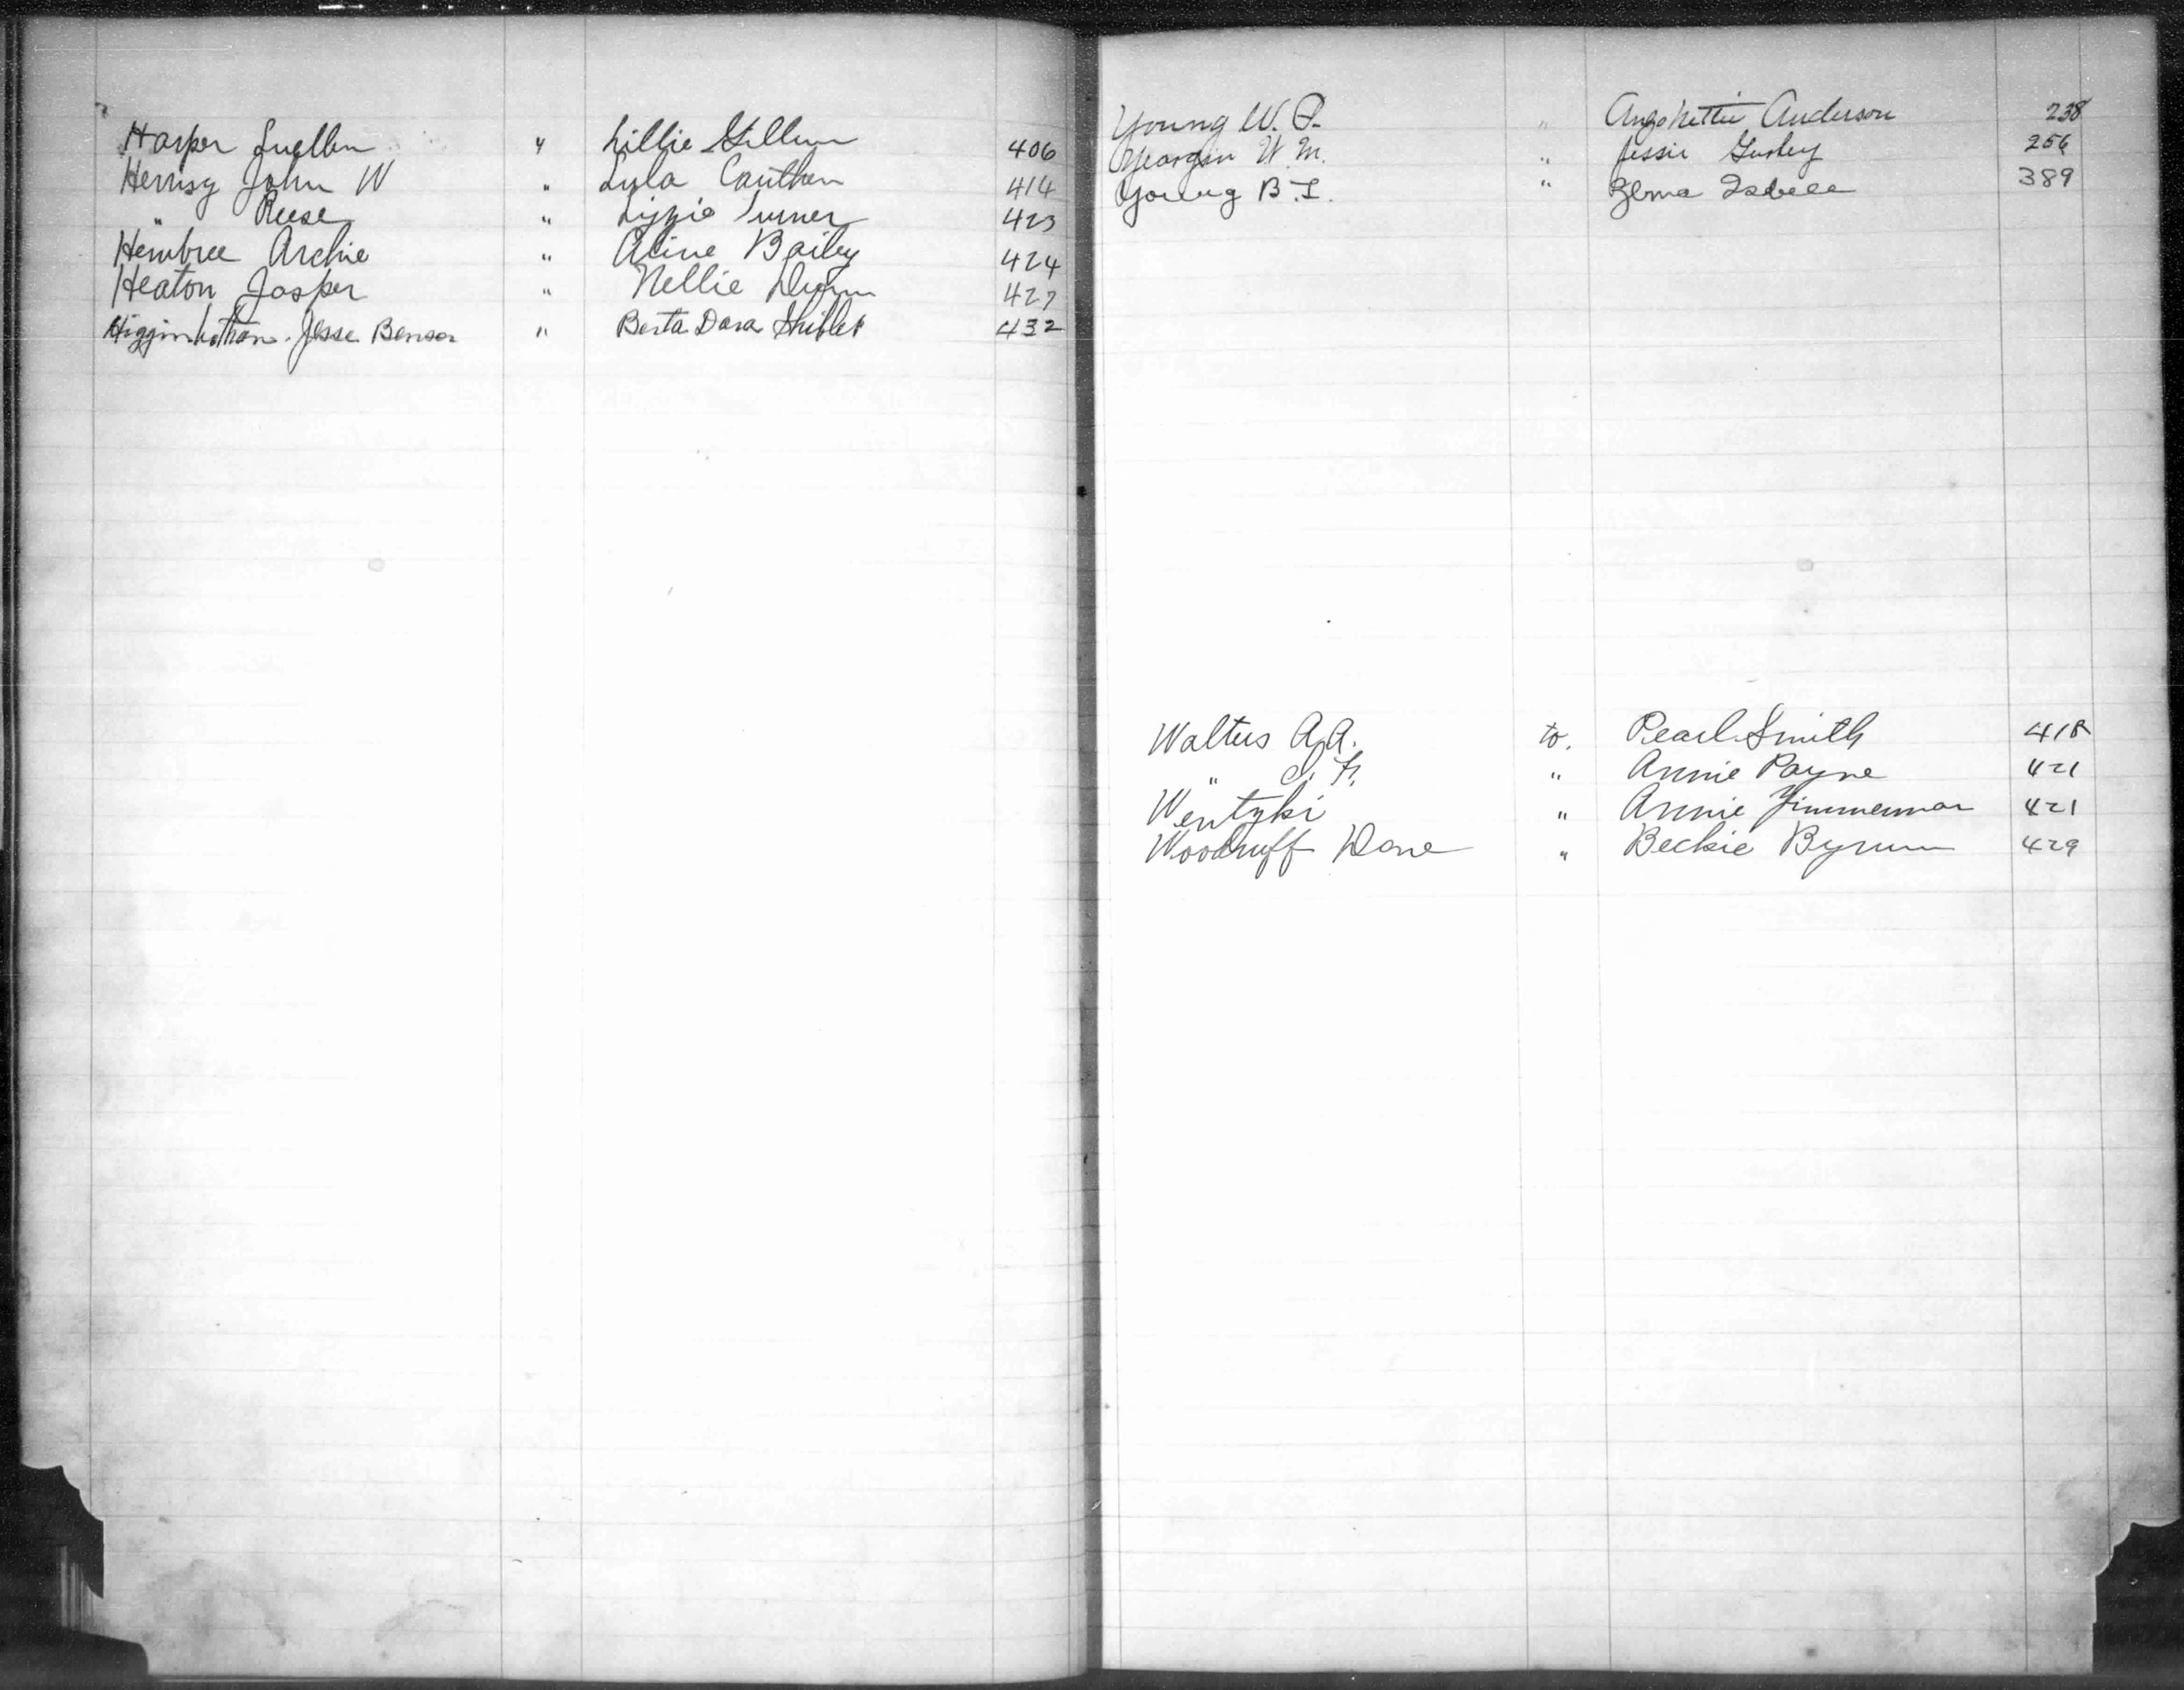 Harper Luellen " Lillie Gillum 406
Hennsy John W " Lula Cauthen 414
" Reese " Lizzie Turner 423
Hembree Archie " Aline Bailey 424
Heaton Jasper " Nellie Dunn 427
Higginbotham Jesse Benson " Berta Dora 432
Young W. P. " Anderson 238
Yeargin W. M. " Jessie Gurley 256
Young B. I. " Zema Isabell 389
Walters A. A. to. Pearl Smith 418
" C. H. " Annie Payne 421
Wentzki " Annie Zimmerman 421
Woodruff Dane " Beckie Byrum 429